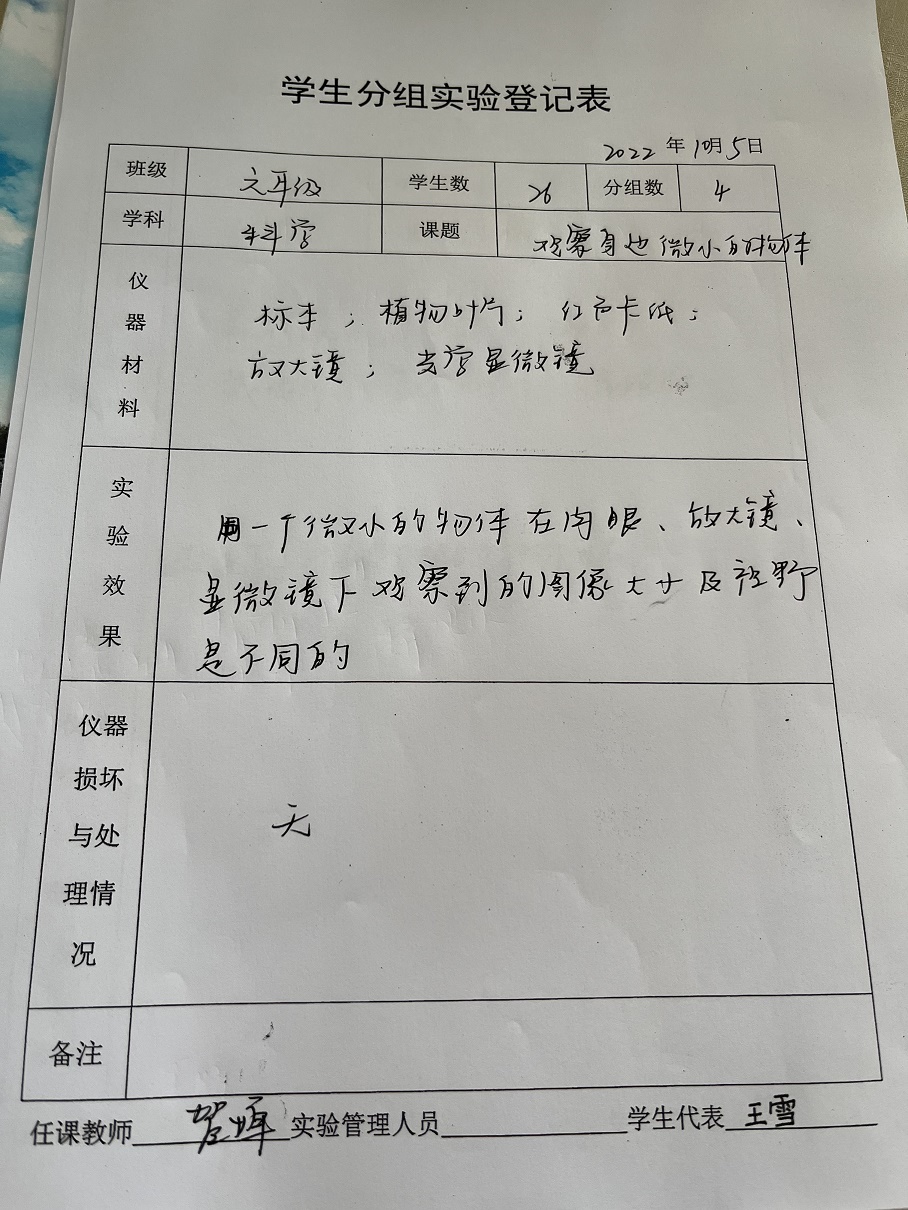 学生分组实验登记表
2022 年 10月 5日
班级 六年级 学生数 26 分组数 4
学科 科学 课题 观察身边微小的物体
仪器材料
标本；植物叶片；红色卡纸；
放大镜；光学显微镜
实验效果
用一个微小的物体在肉眼、放大镜、
显微镜下观察到的图像大小及视野
是不同的
仪器损坏与处理情况
无
备注
任课教师 实验管理人员 学生代表 王雪